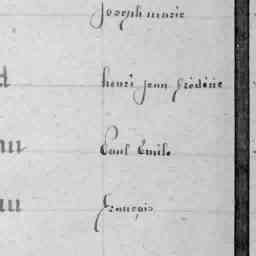 Joseph marie
d henri jean frédéric
Paul Emile
François